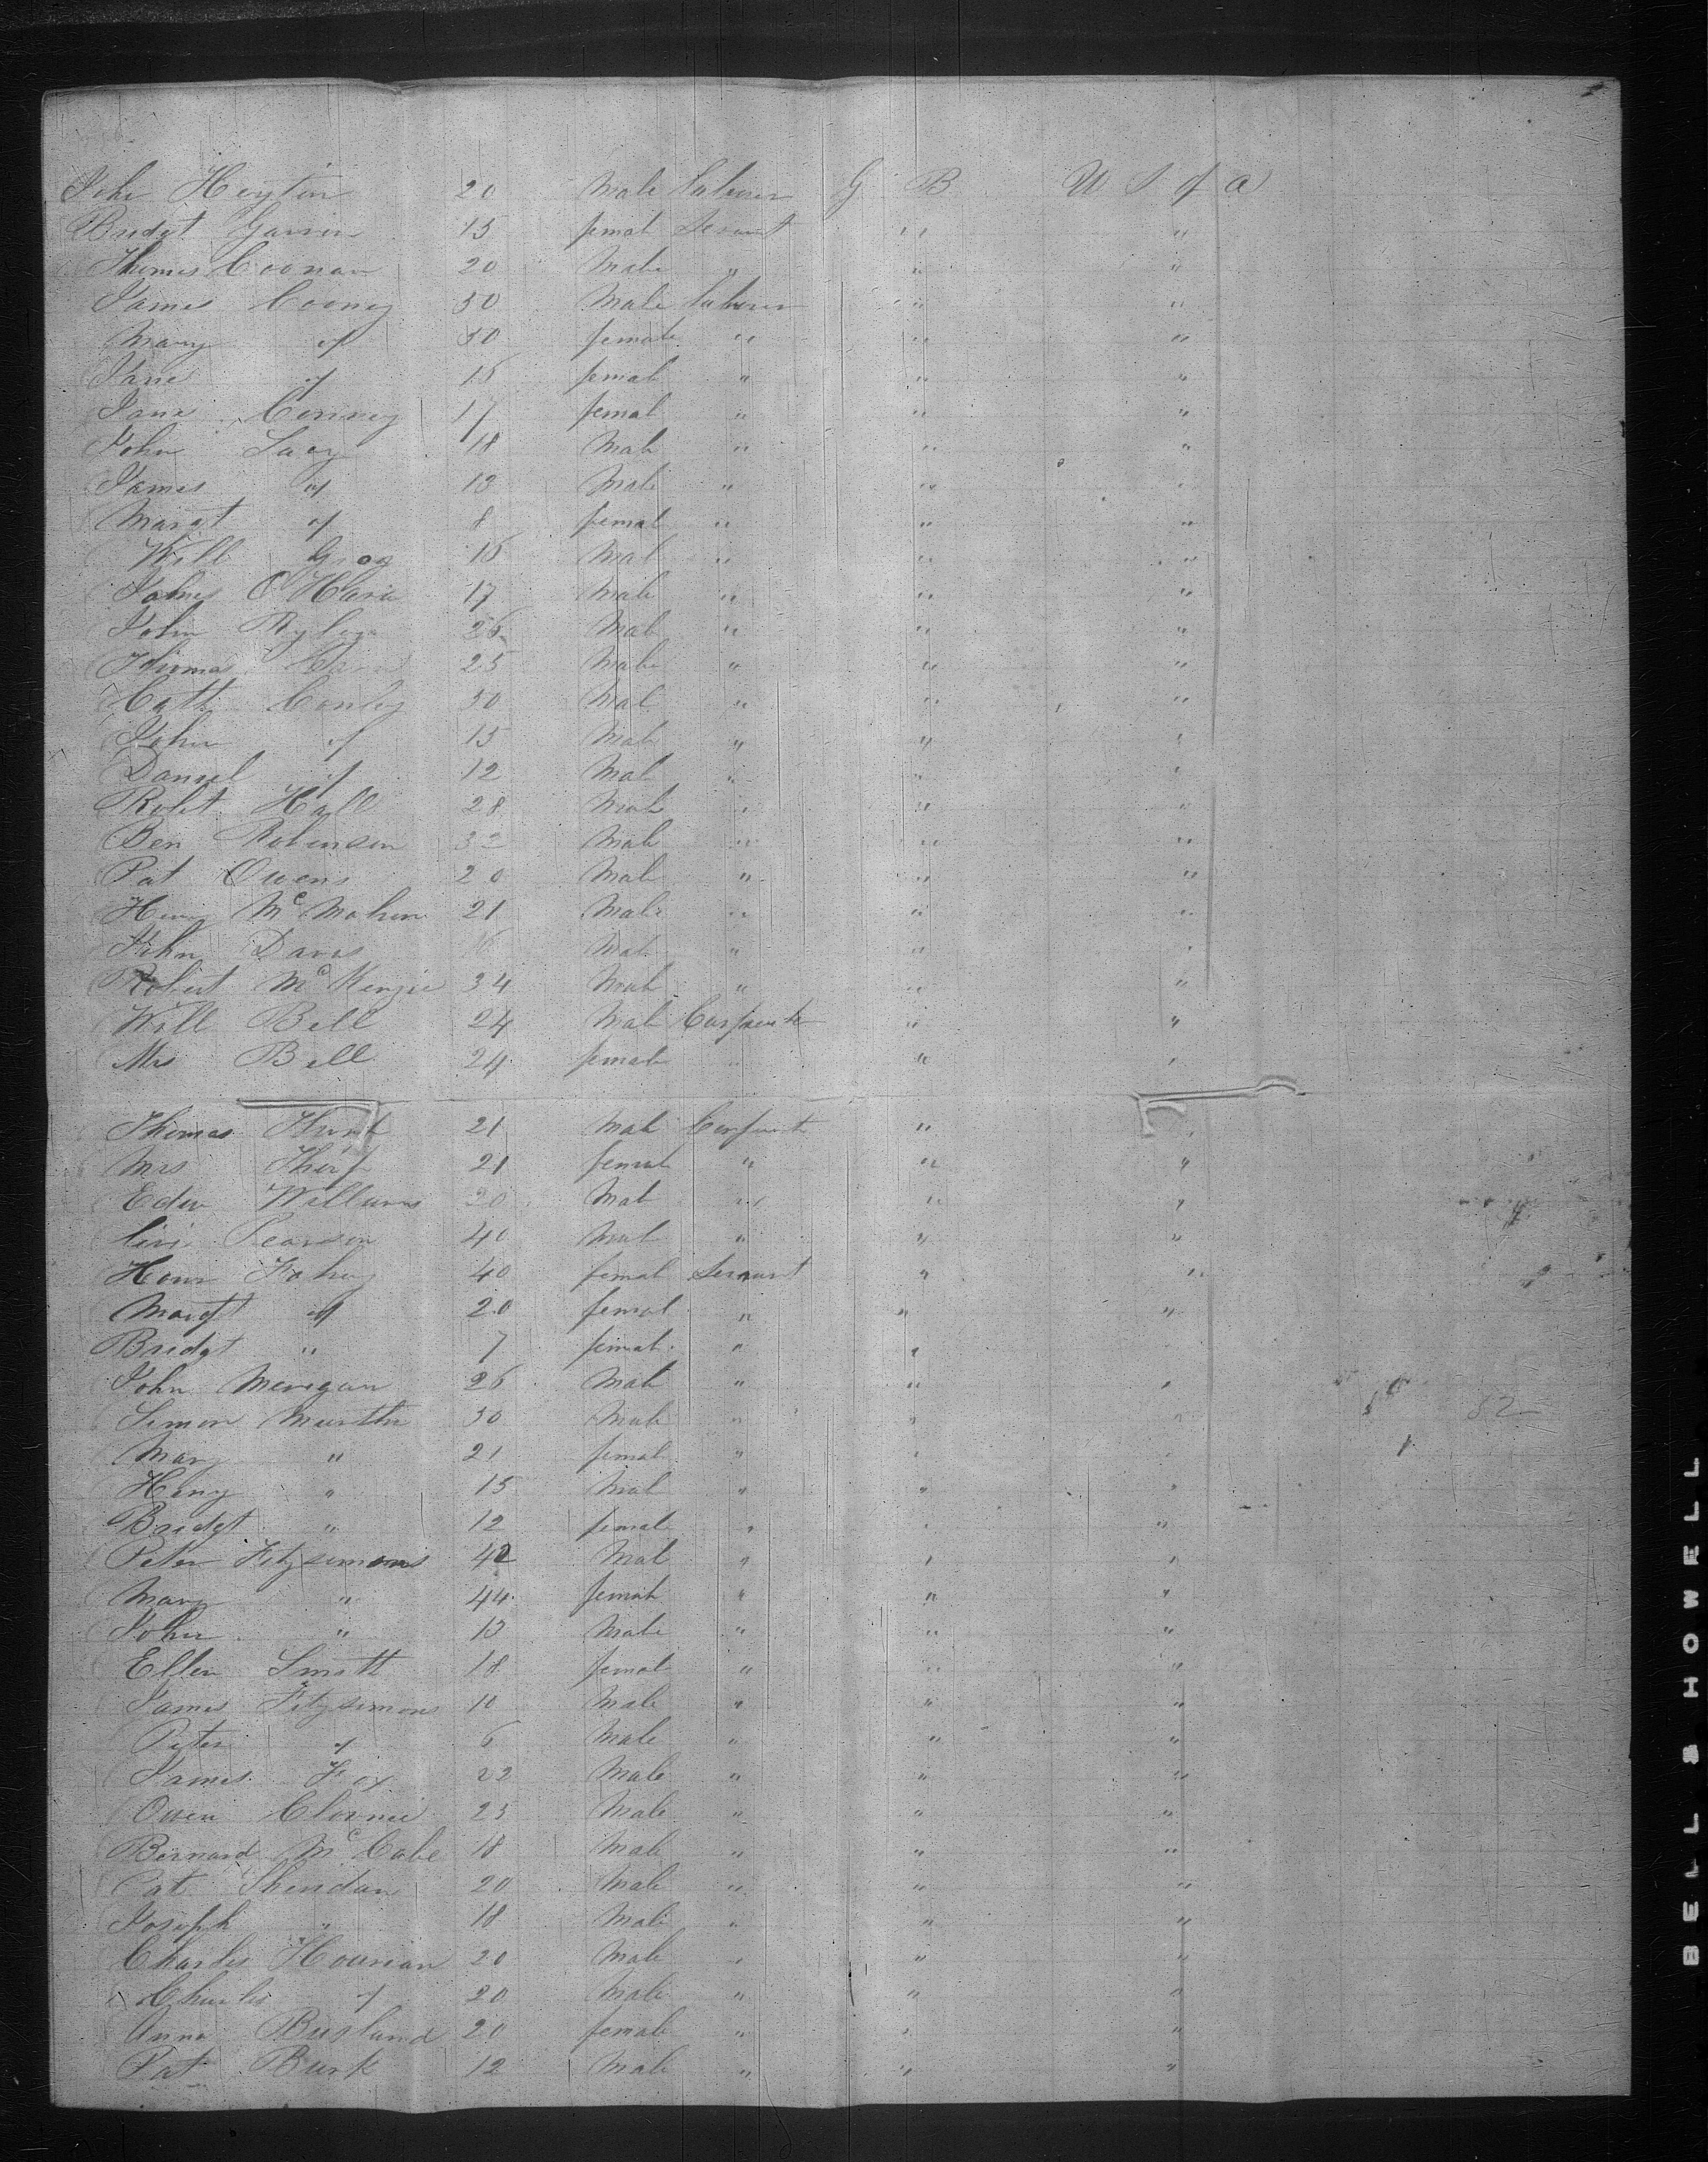 John Heyton 20 Male Labourer G B U S of a
Bridgt Garvin 15 femal Servant " "
Thomas Coonan 20 Male " " "
James Cooney 50 Male Labourer " "
Mary " 50 female " " "
Jane " 16 femal " " "
Jane Conney 17 femal " " "
John Lacy 18 Male " " "
James " 13 Male " " "
Margt " 8 femal " " "
Will 15 Mal " " "
James O'Hara 17 Male " " "
John Ryley 26 Male " " "
Thomas 25 Male " " "
Cath Conley 50 Mal " " "
John " 15 Male " " "
Daniel " 12 Mal " " "
Robt Hall 28 Male " " "
Ben Robinson Male " " "
Pat Owens 20 Male " " "
Henry Mc Mahon 21 Male " " "
John Davis 16 Mal " " "
Robert Mc Kenzie 34 Male " " "
Will Bell 24 Mal Carpente " "
Mrs Bell 24 female " " "
Thomas 21 Male Carpente " "
Mrs 21 femal " " "
Edw Williams 20 Mal " " "
Pearson 40 Male " " "
Honr Fahey 40 femal Servant " "
Margt " 20 femal " " "
Bridgt " 7 femal " " "
John Merigan 26 Male " " "
Simon Murtha 50 Male " " " 52
Mary " 21 female " " "
Heny " 15 Mal " " "
Bridgt " 12 female " " "
Peter Fitzsimons 42 Mal " " "
Mary " 44 female " " "
John " 13 Male " " "
Ellen Smith 18 femal " " "
James Fitzsimons 10 Male " " "
Peter " 6 Male " " "
James Fox 22 Male " " "
Owen 23 Male " " "
Bernard Mc Cabe 18 Male " " "
Pat Sheridan 20 Male " " "
Joseph " 18 Male " " "
Charles Hourian 20 Male " " "
Charles " 20 Male " " "
Anna Busland 20 female " " "
Pat Burk 12 Male " " "
BELL & HOWELL